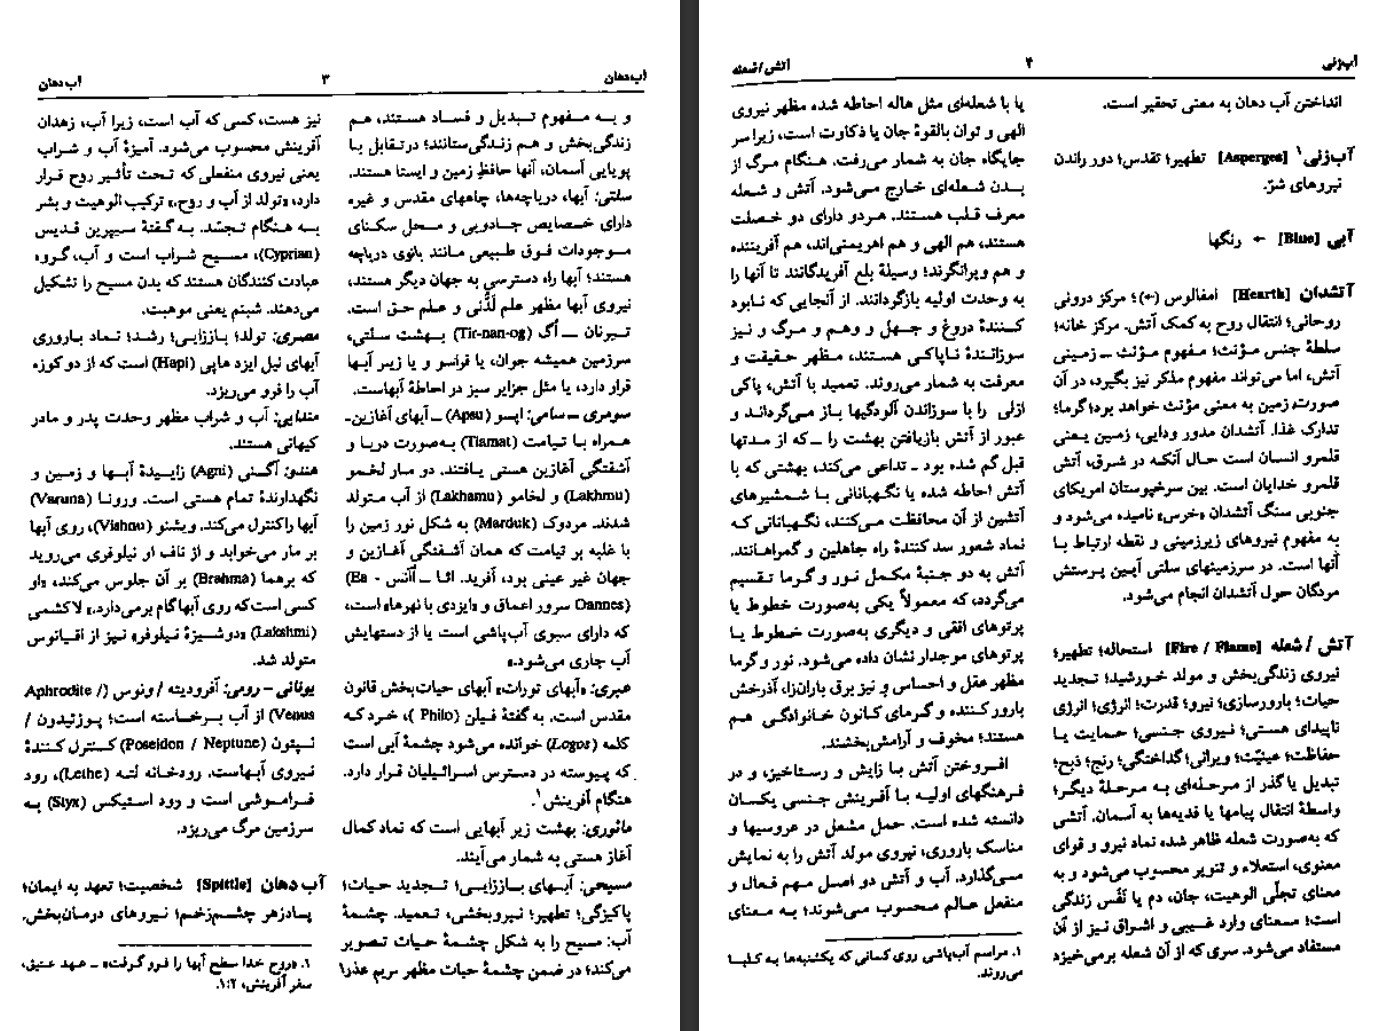 آب‌دهان
۳
آب‌دهان
و به مفهوم تبدیل و فساد هستند، هم
زندگی‌بخش و هم زندگی‌ستانند؛ درتقابل با
پویایی آسمان، آنها حافظِ زمین و ایستا هستند.
سلتی: آبها، دریاچه‌ها، چاههای مقدس و غیره
دارای خصایص جادویی و محل سکنای
موجودات فوق طبیعی مانند بانوی دریاچه
هستند؛ آبها راه دسترسی به جهان دیگر هستند،
نیروی آبها مظهر علم لَدُنّی و علم حق است.
تیرنان ــ اُگ (Tir-nan-og) بهشت سلتی،
سرزمین همیشه جوان، یا فراسو و یا زیر آبها
قرار دارد، یا مثل جزایر سبز در احاطهٔ آبهاست.
سومری ــ سامی: اپسو (Apsu) ــ آبهای آغازین‌ـ
همراه با تیامت (Tiamat) به‌صورت دریا و
آشفتگی آغازین هستی یافتند. دو مار لخمو
(Lakhmu) و لخامو (Lakhamu) از آب متولد
شدند. مردوک (Marduk) به شکل نور زمین را
با غلبه بر تیامت که همان آشفتگی آغازین و
جهان غیر عینی بود، آفرید. ائا ــ اُآنس (Ea -
Oannes) سرور اعماق و «ایزدی با نهرها» است،
که دارای سبوی آب‌پاشی است یا از دستهایش
آب جاری می‌شود.»
عبری: «آبهای تورات» آبهای حیات‌بخش قانون
مقدس است. به گفتهٔ فیلن (Philo )، خرد که
کلمه (Logos) خوانده می‌شود چشمهٔ آبی است
که پیوسته در دسترس اسرائیلیان قرار دارد.
هنگام آفرینش۱.
مائوری: بهشت زیر آبهایی است که نماد کمال
آغاز هستی به شمار می‌آیند.
مسیحی: آبهای باززایی؛ تجدید حیات؛
پاکیزگی؛ تطهیر؛ نیروبخشی، تعمید. چشمهٔ
آب: مسیح را به شکل چشمهٔ حیات تصویر
می‌کند؛ در ضمن چشمهٔ حیات مظهر مریم عذرا
نیز هست، کسی که آب است، زیرا آب، زهدان
آفرینش محسوب می‌شود. آمیزهٔ آب و شراب
یعنی نیروی منفعلی که تحت تأثیر روح قرار
دارد، «تولد از آب و روح.» ترکیب الوهیت و بشر
به هنگام تجسّد. به گفتهٔ سیپرین قدیس
(Cyprian)، مسیح شراب است و آب، گروه
عبادت کنندگان هستند که بدن مسیح را تشکیل
می‌دهند. شبنم یعنی موهبت.
مصری: تولد؛ باززایی؛ رشد؛ نماد باروری
آبهای نیل ایزد هاپی (Hapi) است که از دو کوزه
آب را فرو می‌ریزد.
مندایی: آب و شراب مظهر وحدت پدر و مادر
کیهانی هستند.
هندو: آگنی (Agni) زاییدهٔ آبها و زمین و
نگهدارندهٔ تمام هستی است. ورونا (Varuna)
آبها راکنترل می‌کند. ویشنو (Vishnu)، روی آبها
بر مار می‌خوابد و از ناف او نیلوفری می‌روید
که برهما (Brahma) بر آن جلوس می‌کند، «او
کسی است‌که روی آبهاگام برمی‌دارد.» لاکشمی
(Lakshmi) «دوشیزهٔ نیلوفر» نیز از اقیانوس
متولد شد.
یونانی – رومی: آفرودیته / ونوس (Aphrodite /
Venus) از آب برخاسته است؛ پوزئیدون /
نپتون (Poseidon / Neptune) کنترل کنندهٔ
نیروی آبهاست. رودخانه لته (Lethe)، رود
فراموشی است و رود استیکس (Styx) به
سرزمین مرگ می‌ریزد.
آب دهان [Spittle] شخصیت؛ تعهد به ایمان؛
پادزهر چشم‌زخم؛ نیروهای درمان‌بخش.
۱. «روح خدا سطح آبها را فرو گرفت» ــ عهد عتیق،
سفر آفرینش، ۱:۲.
آب‌زنی
۴
آتش/شعله
انداختن آب دهان به معنی تحقیر است.
آب‌زنی۱ [Asperges] تطهیر؛ تقدس؛ دور راندن
نیروهای شرّ.
آبی [Blue] ← رنگها
آتشدان [Hearth] امفالوس (←)؛ مرکز درونی
روحانی؛ انتقال روح به کمک آتش. مرکز خانه؛
سلطهٔ جنس مؤنث؛ مفهوم مؤنث ــ زمینی
آتش، اما می‌تواند مفهوم مذکر نیز بگیرد، در آن
صورت، زمین به معنی مؤنث خواهد بود؛ گرما؛
تدارک غذا. آتشدان مدور ودایی، زمین یعنی
قلمرو انسان است حال آنکه در شرق، آتش
قلمرو خدایان است. بین سرخپوستان امریکای
جنوبی سنگ آتشدان «خرس» نامیده می‌شود و
به مفهوم نیروهای زیرزمینی و نقطه ارتباط با
آنها است. در سرزمینهای سلتی آیین پرستش
مردگان حول آتشدان انجام می‌شود.
آتش / شعله [Fire / Flame] استحاله؛ تطهیر؛
نیروی زندگی‌بخش و مولد خورشید؛ تجدید
حیات؛ بارورسازی؛ نیرو؛ قدرت؛ انرژی؛ انرژی
ناپیدای هستی؛ نیروی جنسی؛ حمایت یا
حفاظت؛ عینیّت؛ ویرانی؛ گداختگی؛ رنج؛ ذبح؛
تبدیل یا گذر از مرحله‌ای به مرحلهٔ دیگر؛
واسطهٔ انتقال پیامها یا فدیه‌ها به آسمان. آتشی
که به‌صورت شعله ظاهر شده نماد نیرو و قوای
معنوی، استعلاء و تنویر محسوب می‌شود و به
معنای تجلّی الوهیت، جان، دم یا نَفَس زندگی
است؛ معنای وارد غیبی و اشراق نیز از آن
مستفاد می‌شود. سری که از آن شعله برمی‌خیزد
یا با شعله‌ای مثل هاله احاطه شده مظهر نیروی
الهی و توان بالقوهٔ جان یا ذکاوت است، زیرا سر
جایگاه جان به شمار می‌رفت. هنگام مرگ از
بدن شعله‌ای خارج می‌شود. آتش و شعله
معرف قلب هستند. هردو دارای دو خصلت
هستند، هم الهی و هم اهریمنی‌اند، هم آفریننده
و هم ویرانگرند؛ وسیلهٔ بلع آفریدگانند تا آنها را
به وحدت اولیه بازگردانند. از آنجایی که نابود
کنندهٔ دروغ و جهل و وهم و مرگ و نیز
سوزانندهٔ ناپاکی هستند، مظهر حقیقت و
معرفت به شمار می‌روند. تعمید با آتش، پاکی
ازلی را با سوزاندن آلودگیها باز می‌گرداند و
عبور از آتش بازیافتن بهشت را ــ که از مدتها
قبل گم شده بود ــ تداعی می‌کند، بهشتی که با
آتش احاطه شده یا نگهبانانی با شمشیرهای
آتشین از آن محافظت می‌کنند، نگهبانانی که
نماد شعور سد کنندهٔ راه جاهلین و گمراهانند.
آتش به دو جنبهٔ مکمل نور و گرما تقسیم
می‌گردد، که معمولاً یکی به‌صورت خطوط یا
پرتوهای افقی و دیگری به‌صورت خطوط یا
پرتوهای موجدار نشان داده می‌شود. نور و گرما
مظهر عقل و احساس و نیز برق باران‌زا، آذرخش
بارور کننده و گرمای کانون خانوادگی هم
هستند؛ مخوف و آرامش‌بخشند.
افروختن آتش با زایش و رستاخیز، و در
فرهنگهای اولیه با آفرینش جنسی یکسان
دانسته شده است. حمل مشعل در عروسیها و
مناسک باروری، نیروی مولد آتش را به نمایش
می‌گذارد. آب و آتش دو اصل مهم فعال و
منفعل عالم محسوب می‌شوند؛ به معنای
۱. مراسم آب‌پاشی روی کسانی که یکشنبه‌ها به کلیسا
می‌روند.